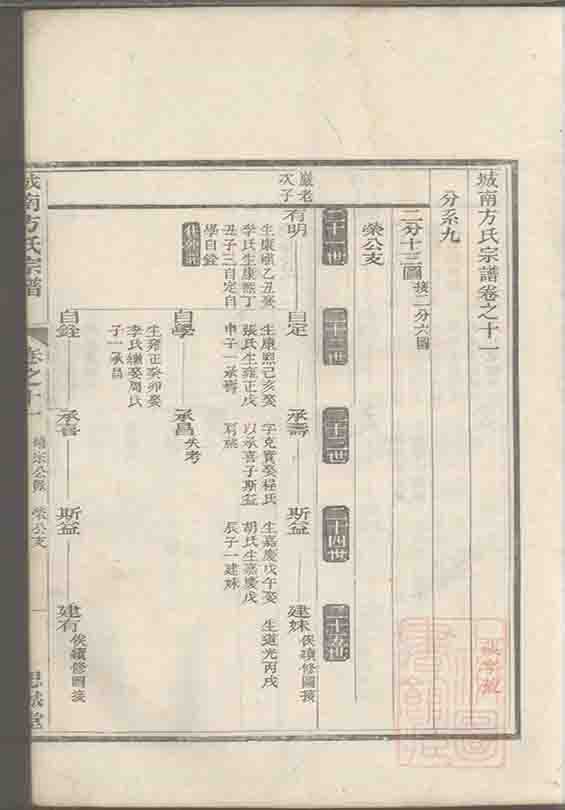 城南方氏宗譜卷之十一
分系九
二分十三圖 接二分六圖
榮公支
二十一世
二十二世
二十三世
二十四世
二十五世
嚴老
次子
有明
生康熙乙丑娶
李氏生康熙丁
丑子三自定自
學自銓
自定
生康熙己亥娶
張氏生雍正戊
申子一承壽
承壽
字克實娶程氏
以承喜子斯益
爲燕
斯益
生嘉慶戊午娶
胡氏生嘉慶戊
辰子一建妹
建妹
生道光丙戌
俟續修圖接
自學
承昌 失考
自銓
生雍正癸卯娶
李氏繼娶周氏
子一承喜
承喜
斯益
建有 俟續修圖接
城南方氏宗譜
卷之十一
榮公支
一
思誠堂